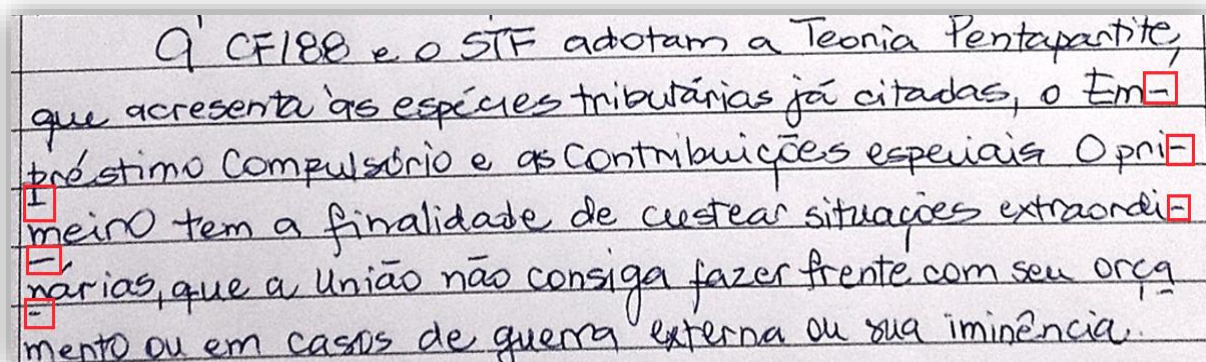 A CF/88 e o STF adotam a Teoria Pentapartite,
que acresenta às espécies tributárias já citadas, o Em-
préstimo Compulsório e as contribuições especiais O pri-
meiro tem a finalidade de custear situações extraordi-
nárias, que a União não consiga fazer frente com seu orça
mento ou em casos de guerra externa ou sua iminência.